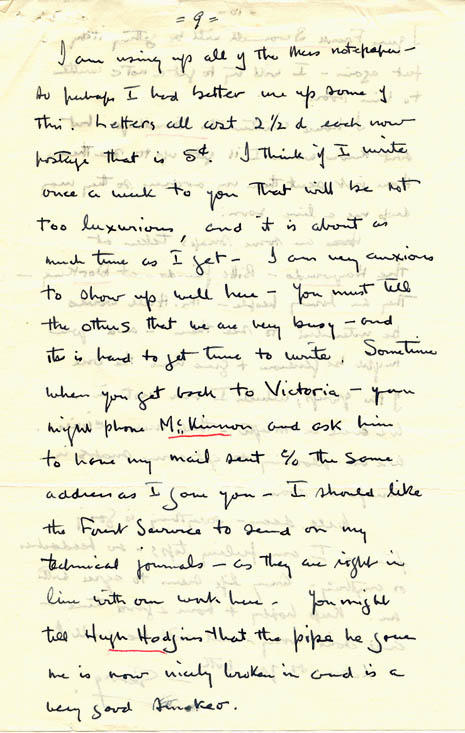 = 9 =
I am using up all of the Mess notepaper —
so perhaps I had better use up some of
this. Letters all cost 2½ d each now
postage that is 5¢. I think if I write
once a week to you that will be not
too luxurious, and it is about as
much time as I get — I am very anxious
to show up well here — You must tell
the others that we are very busy — and
it is hard to get time to write. Sometime
when you get back to Victoria — you
might phone McKinnon and ask him
to have my mail sent c/o the same
address as I gave you — I should like
the Forest Service to send on my
technical journals — as they are right in
line with our work here — You might
tell Hugh Hodgins that the pipe he gave
me is now nicely broken in and is a
very good smoker.